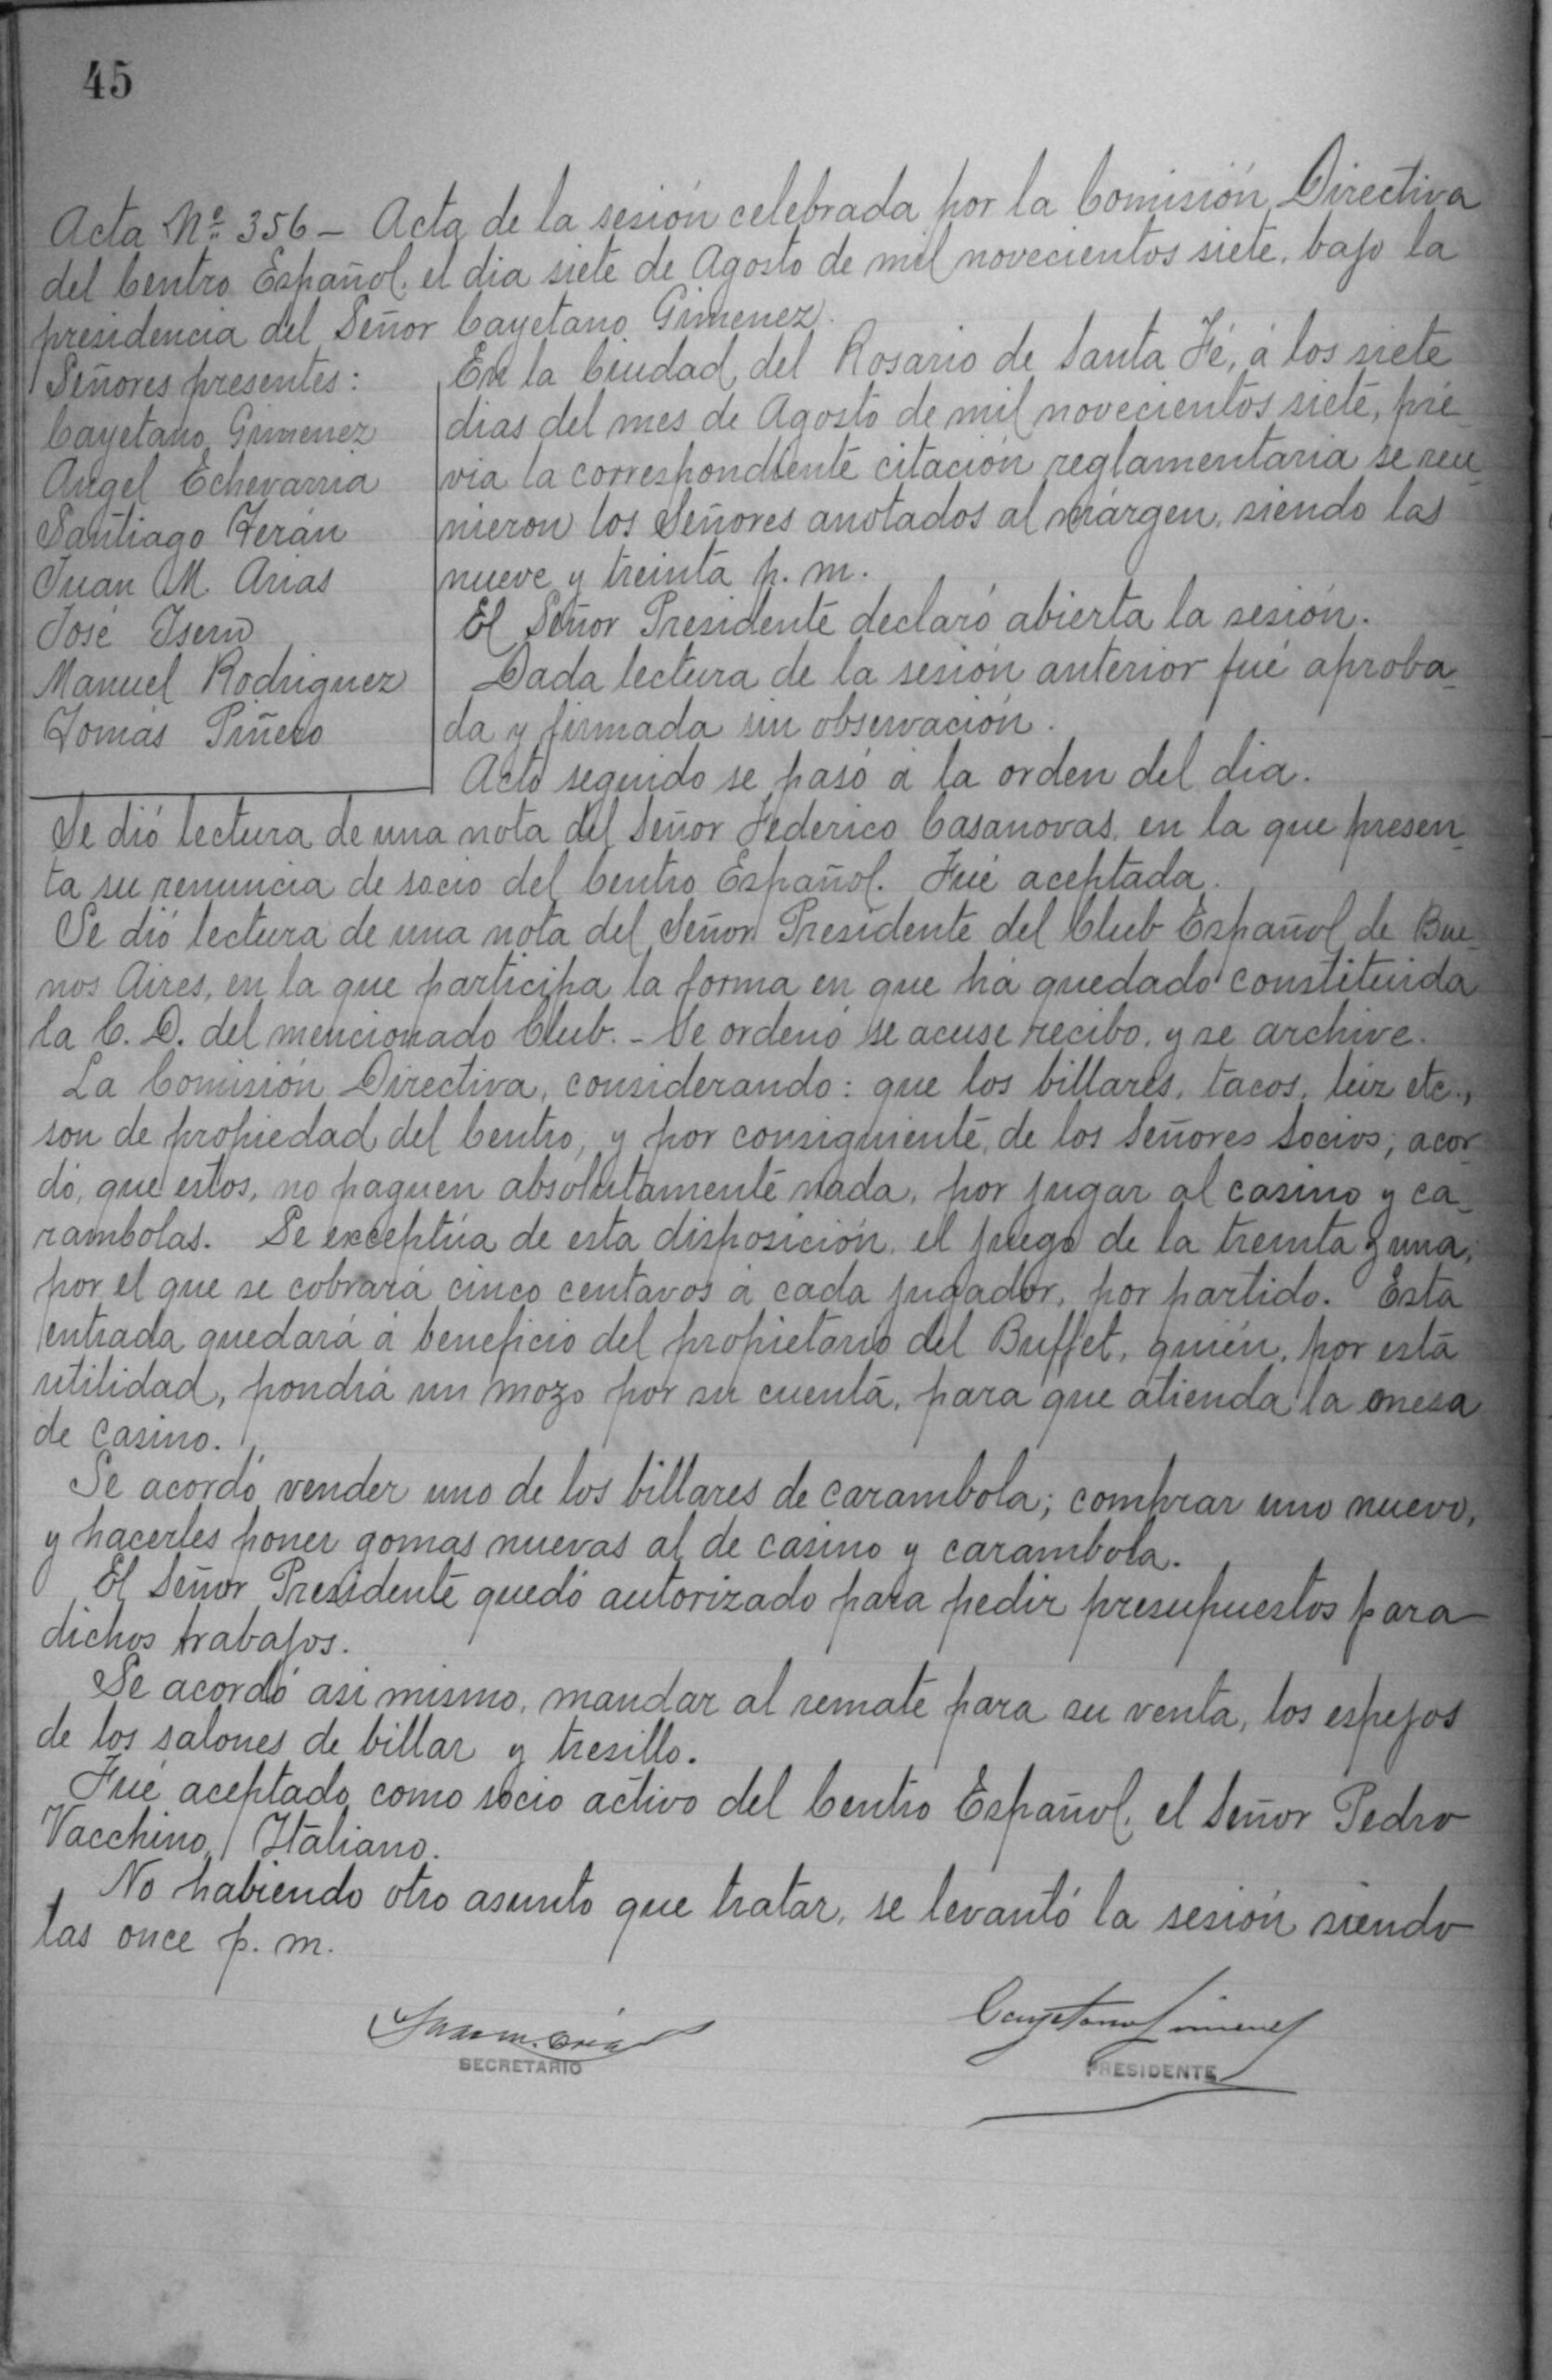 45
Acta Nº 356 - Acta de la sesión celebrada por la Comisión Directiva
del Centro Español, el dia siete de Agosto de mil novecientos siete, bajo la
presidencia del Señor Cayetano Gimenez.
Señores presentes:
Cayetano Gimenez
Angel Echevarria
Santiago Terán
Juan M. Arias
José Isern
Manuel Rodriguez
Tomás Piñero
En la Ciudad del Rosario de Santa Fé, á los siete
dias del mes de Agosto de mil novecientos siete, pré-
via la correspondiente citación reglamentaria se reu-
nieron los Señores anotados al márgen, siendo las
nueve y treinta p. m.
El Señor Presidente declaró abierta la sesión.
Dada lectura de la sesión anterior fué aproba-
da y firmada sin observación.
Acto seguido se pasó á la orden del dia.
Se dió lectura de una nota del Señor Federico Casanovas, en la que presen-
ta su renuncia de socio del Centro Español. Fué aceptada.
Se dió lectura de una nota del Señor Presidente del Club Español de Bue-
nos Aires, en la que participa la forma en que há quedado constituida
la C. D. del mencionado Club. - Se ordenó se acuse recibo, y se archive.
La Comisión Directiva, considerando: que los billares, tacos, luz etc.,
son de propiedad del Centro, y por consiguiente, de los Señores Socios; acor-
dó, que estos, no paguen absolutamente nada, por jugar al casino y ca-
rambolas. Se exceptúa de esta disposición, el juego de la treinta y una,
por el que se cobrará cinco centavos á cada jugador, por partido. Esta
entrada quedará á beneficio del propietario del Buffet, quién, por esta
utilidad, pondrá un mozo por su cuenta, para que atienda la mesa
de casino.
Se acordó vender uno de los billares de carambola; comprar uno nuevo,
y hacerles poner gomas nuevas al de casino y carambola.
El Señor Presidente quedó autorizado para pedir presupuestos para
dichos trabajos.
Se acordó asi mismo, mandar al remate para su venta, los espejos
de los salones de billar y tresillo.
Fué aceptado como socio activo del Centro Español, el Señor Pedro
Vacchino, Italiano.
No habiendo otro asunto que tratar, se levantó la sesión siendo
las once p. m.
Juan M. Arias
SECRETARIO
Cayetano Gimenez
PRESIDENTE